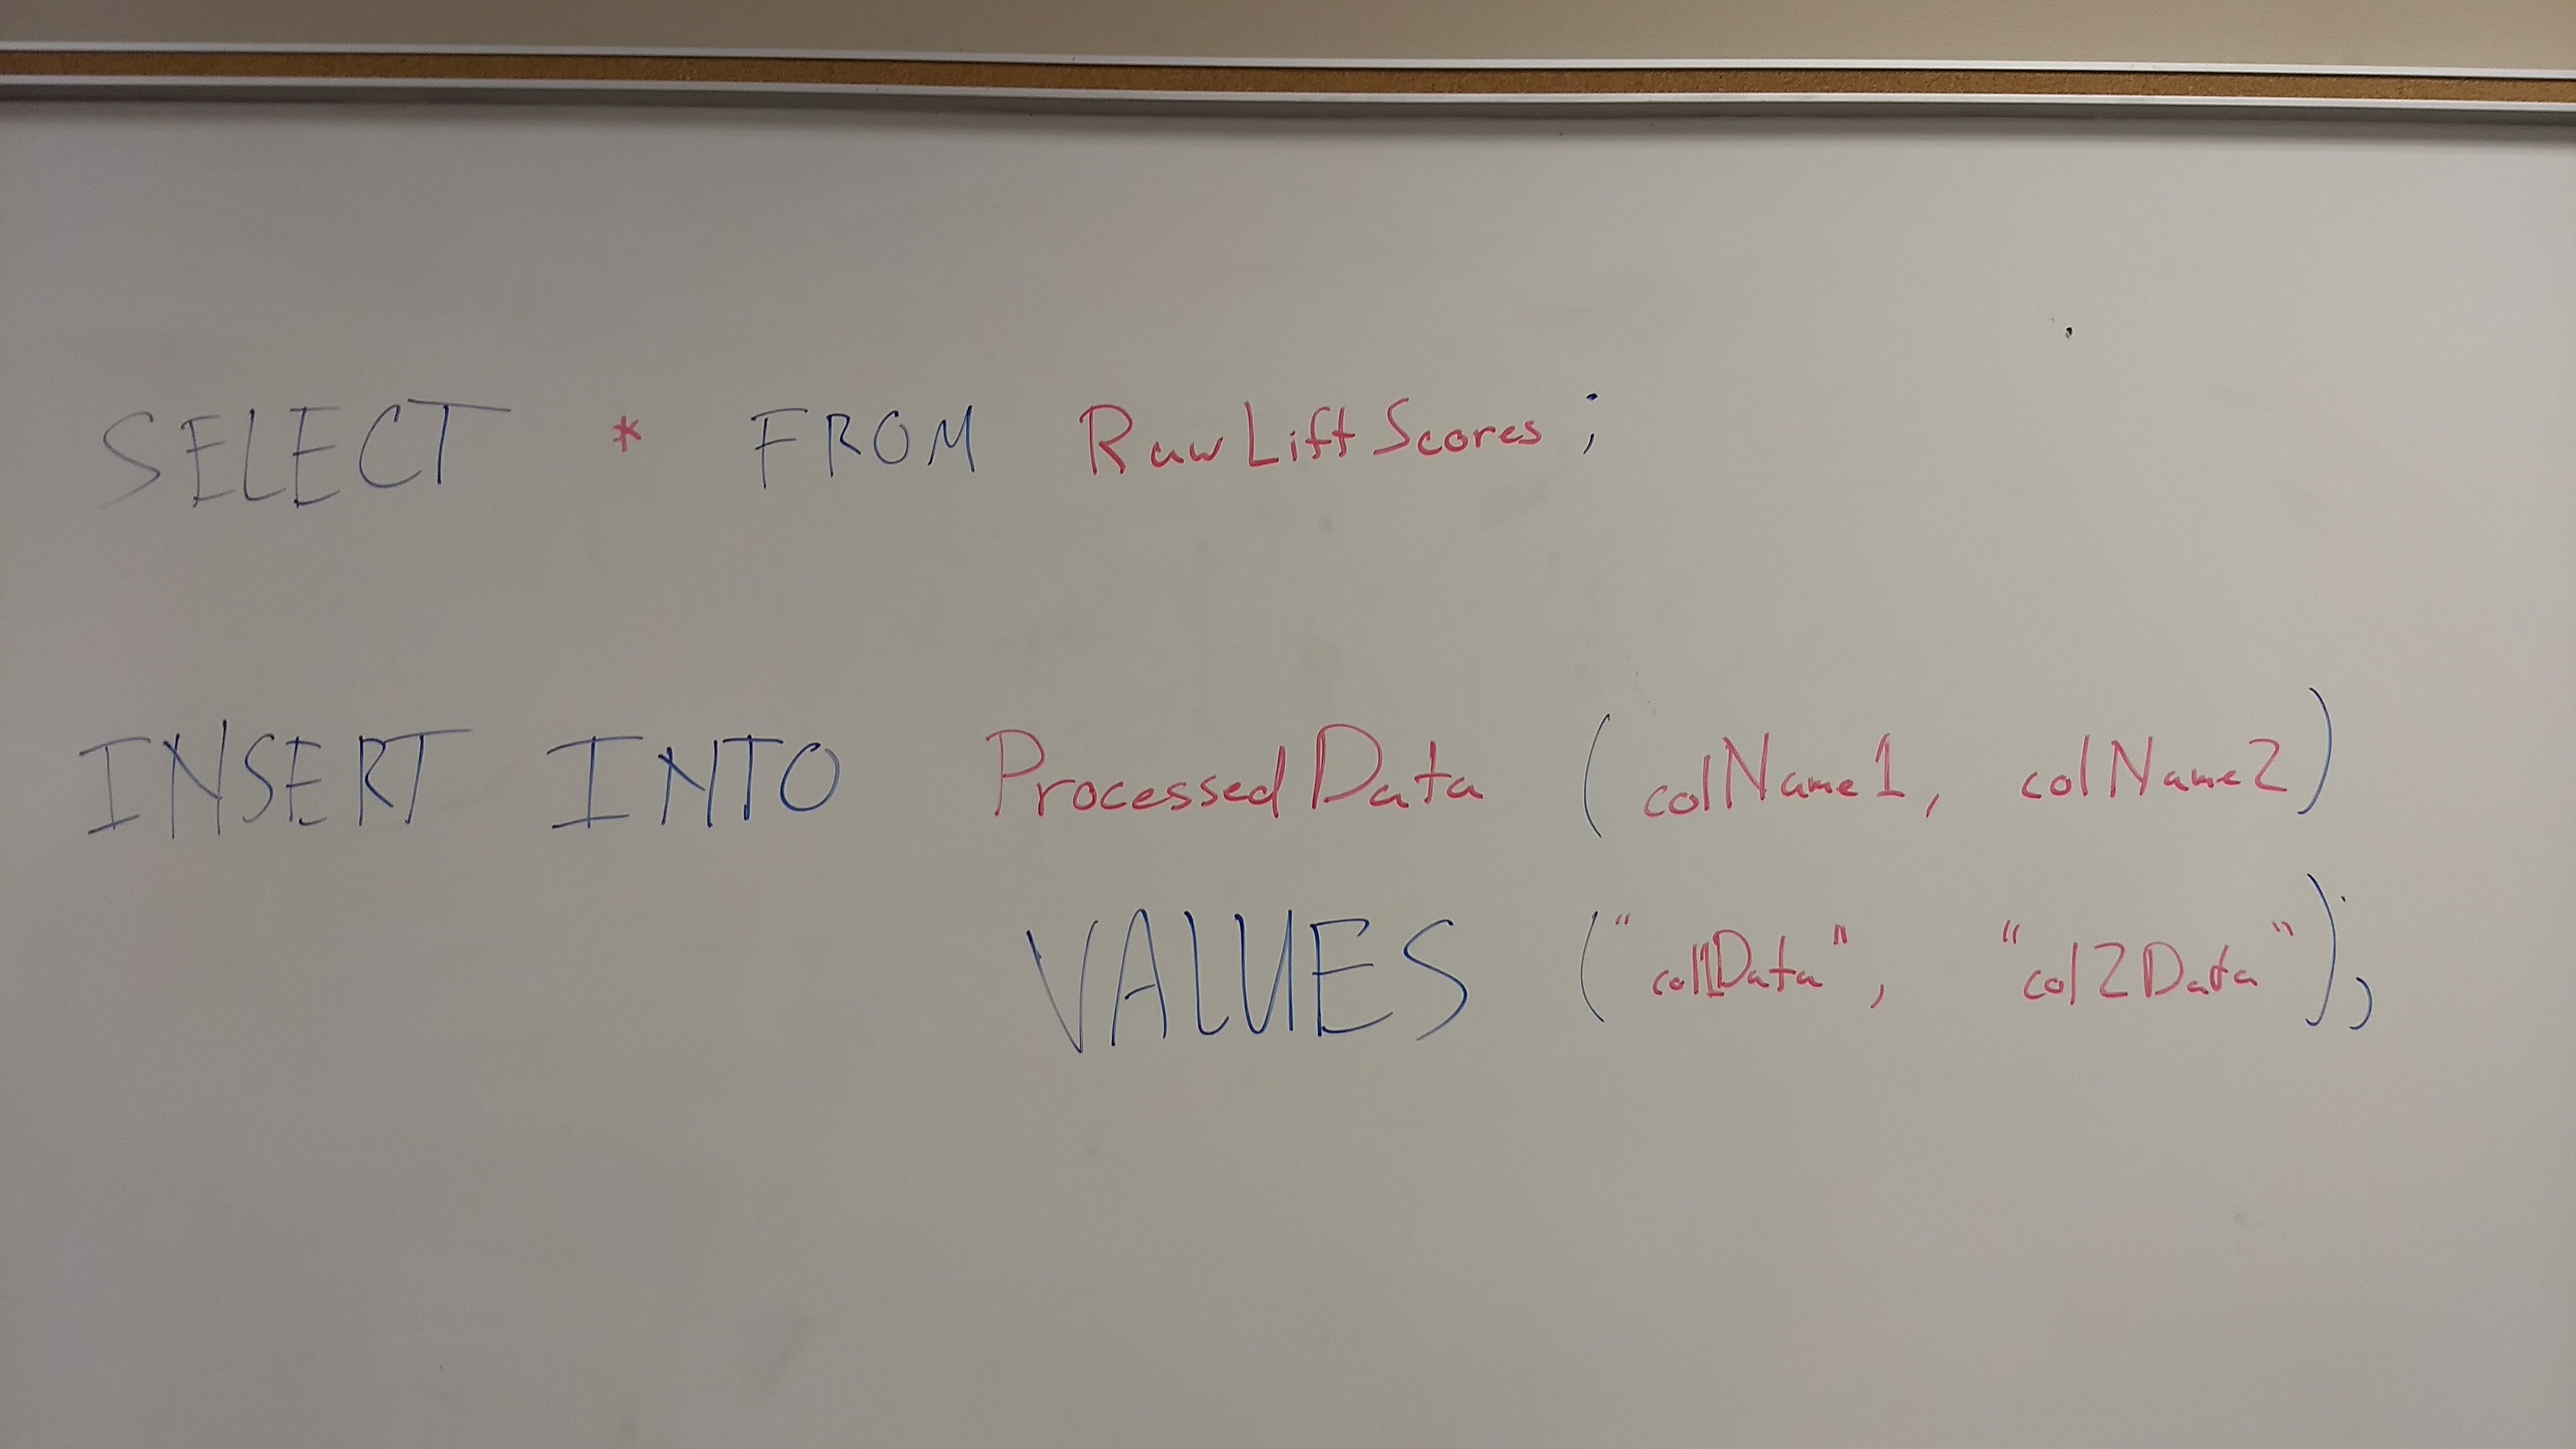 SELECT * FROM RawLiftScores;
INSERT INTO ProcessedData (colName1, colName2)
VALUES ("col1Data", "col2Data");